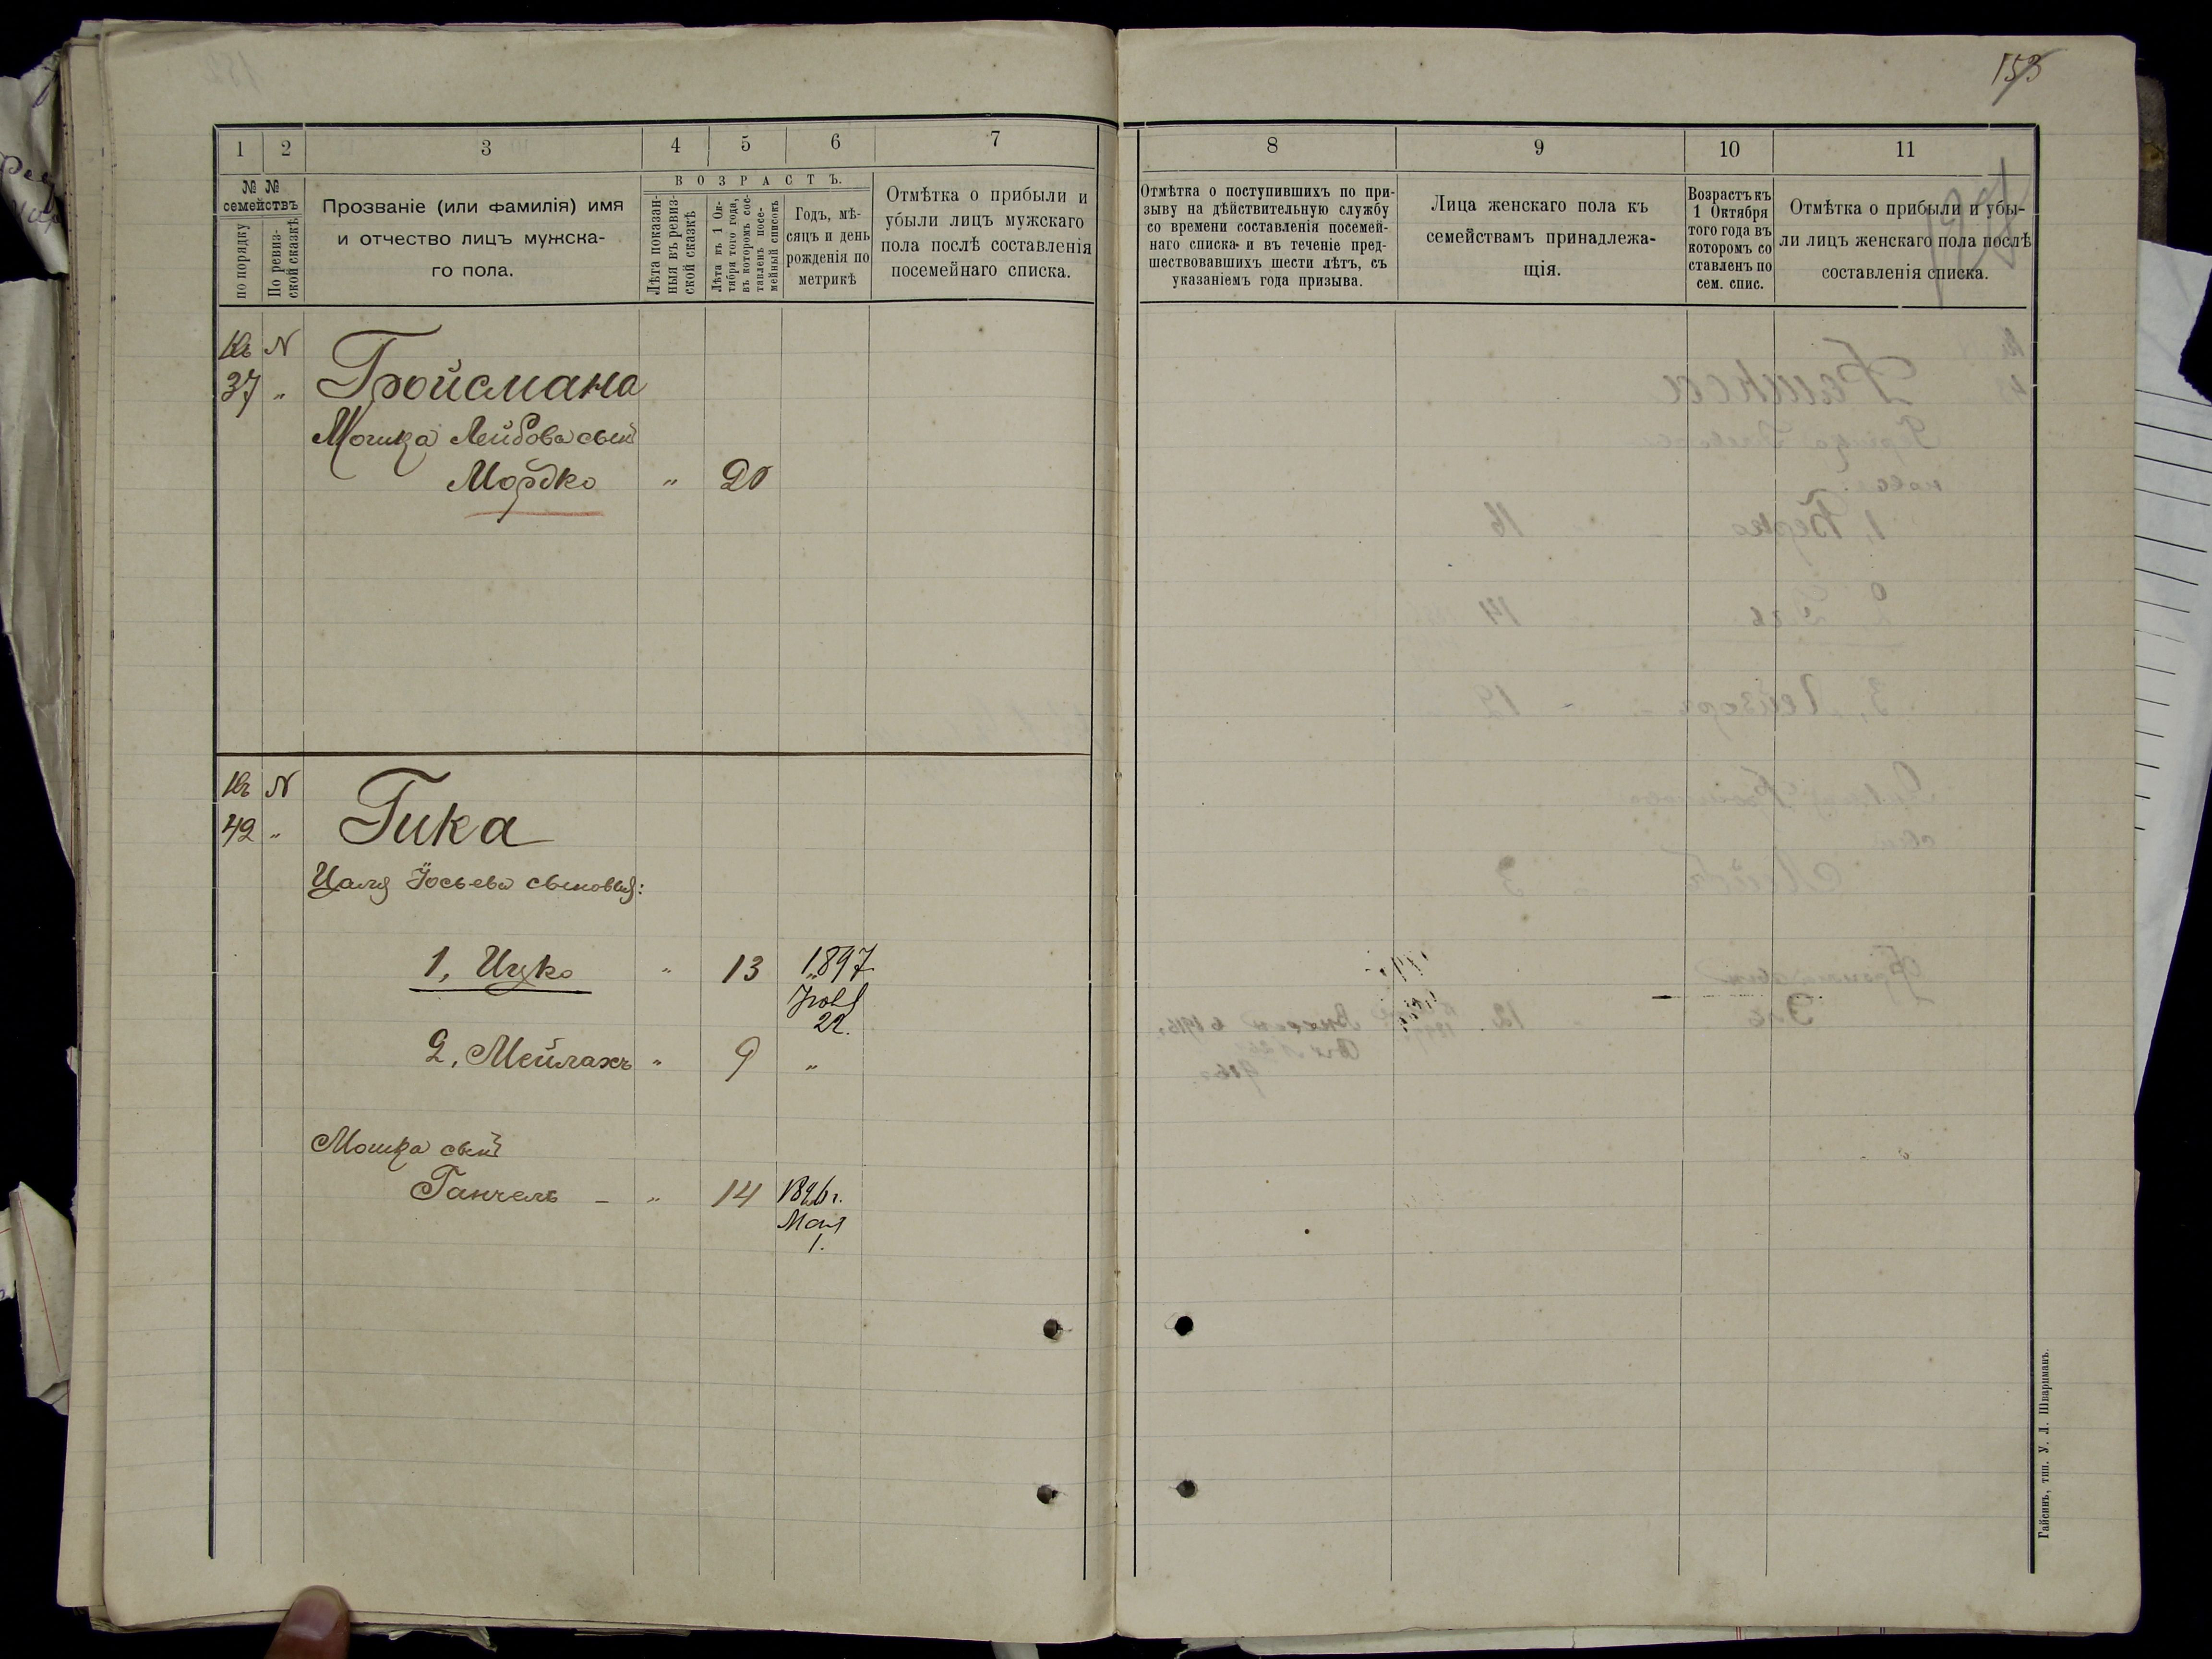 153
1 2 3 4 5 6 7
№ № семействъ
по порядку
По ревиз-
ской сказкѣ
Прозваніе (или фамилія) имя
и отчество лицъ мужска-
го пола.
ВОЗРАСТЪ.
Лѣта показан-
ныя въ ревиз-
ской сказкѣ
Лѣта къ 1 Ок-
тября того года,
въ которомъ сос-
тавленъ посе-
мейный списокъ
Годъ, мѣ-
сяцъ и день
рожденія по
метрикѣ
Отмѣтка о прибыли и
убыли лицъ мужскаго
пола послѣ составленія
посемейнаго списка.
Къ N
37 „ Гройсмана
Мошка Лейбова сынъ
Мордко „ 20
Къ N
42 „ Гика
Цаля Іосьева сыновья:
1, Ицко „ 13 1897
22.
2, Мейлахъ „ 9 „
Мошка сынъ
Ганчель - „ 14 1896 г.
Мая
1.
8 9 10 11
Отмѣтка о поступившихъ по при-
зыву на дѣйствительную службу
со времени составленія посемей-
наго списка и въ теченіе пред-
шествовавшихъ шести лѣтъ, съ
указаніемъ года призыва.
Лица женскаго пола къ
семействамъ принадлежа-
щія.
Возрастъ къ
1 Октября
того года въ
которомъ со
ставленъ по
сем. спис.
Отмѣтка о прибыли и убы-
ли лицъ женскаго пола послѣ
составленія списка.
Гайсинъ, тип. У. Л. Шварцманъ.